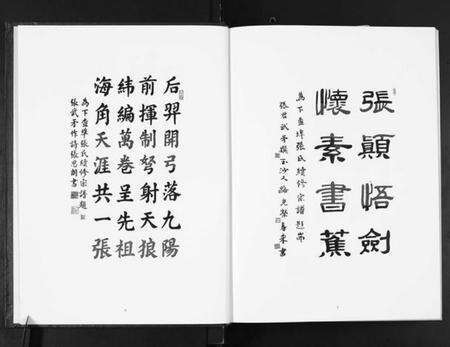 張顛悟劍
懷素書蕉
為下盘埠張氏續修宗譜題耑
后羿開弓落九陽
前揮制弩射天狼
緯編萬卷呈先祖
海角天涯共一張
為下盘埠張氏續修宗譜題
張武矛作詩張忠朗書